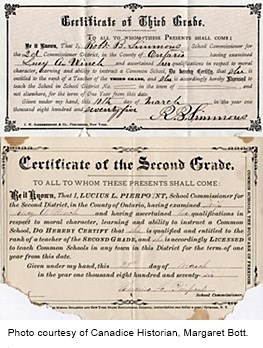 Certificate of Third Grade.
TO ALL TO WHOM THESE PRESENTS SHALL COME:
Be it Known, That I, Robt. B. Simmons, School Commissioner for
2d Commissioner District, in the County of Ontario, having examined
Lucy A. Winch and ascertained her qualifications in respect to moral
character, learning and ability to instruct a Common School, Do hereby Certify, that she
teach the School in School District No.
for the term of
from this date.
Given under my hand, this 10th day of March in the year one thousand
eight hundred and seventy five
R B Simmons
Certificate of the Second Grade.
TO ALL TO WHOM THESE PRESENTS SHALL COME:
Be it Known, That I, LUCIUS L. PIERPONT, School Commissioner for
the Second District, in the County of Ontario, having examined
and having ascertained her qualifications in
respect to moral character, learning and ability to instruct a Common
School, DO HEREBY CERTIFY that she is qualified and entitled to the
rank of a teacher of the SECOND GRADE, and she is accordingly LICENSED
to teach Common Schools in any town in this District for the term of one
year from this date.
Given under my hand, this day of
in the year one thousand eight hundred and seventy
School Commissioner.
Photo courtesy of Canadice Historian, Margaret Bott.